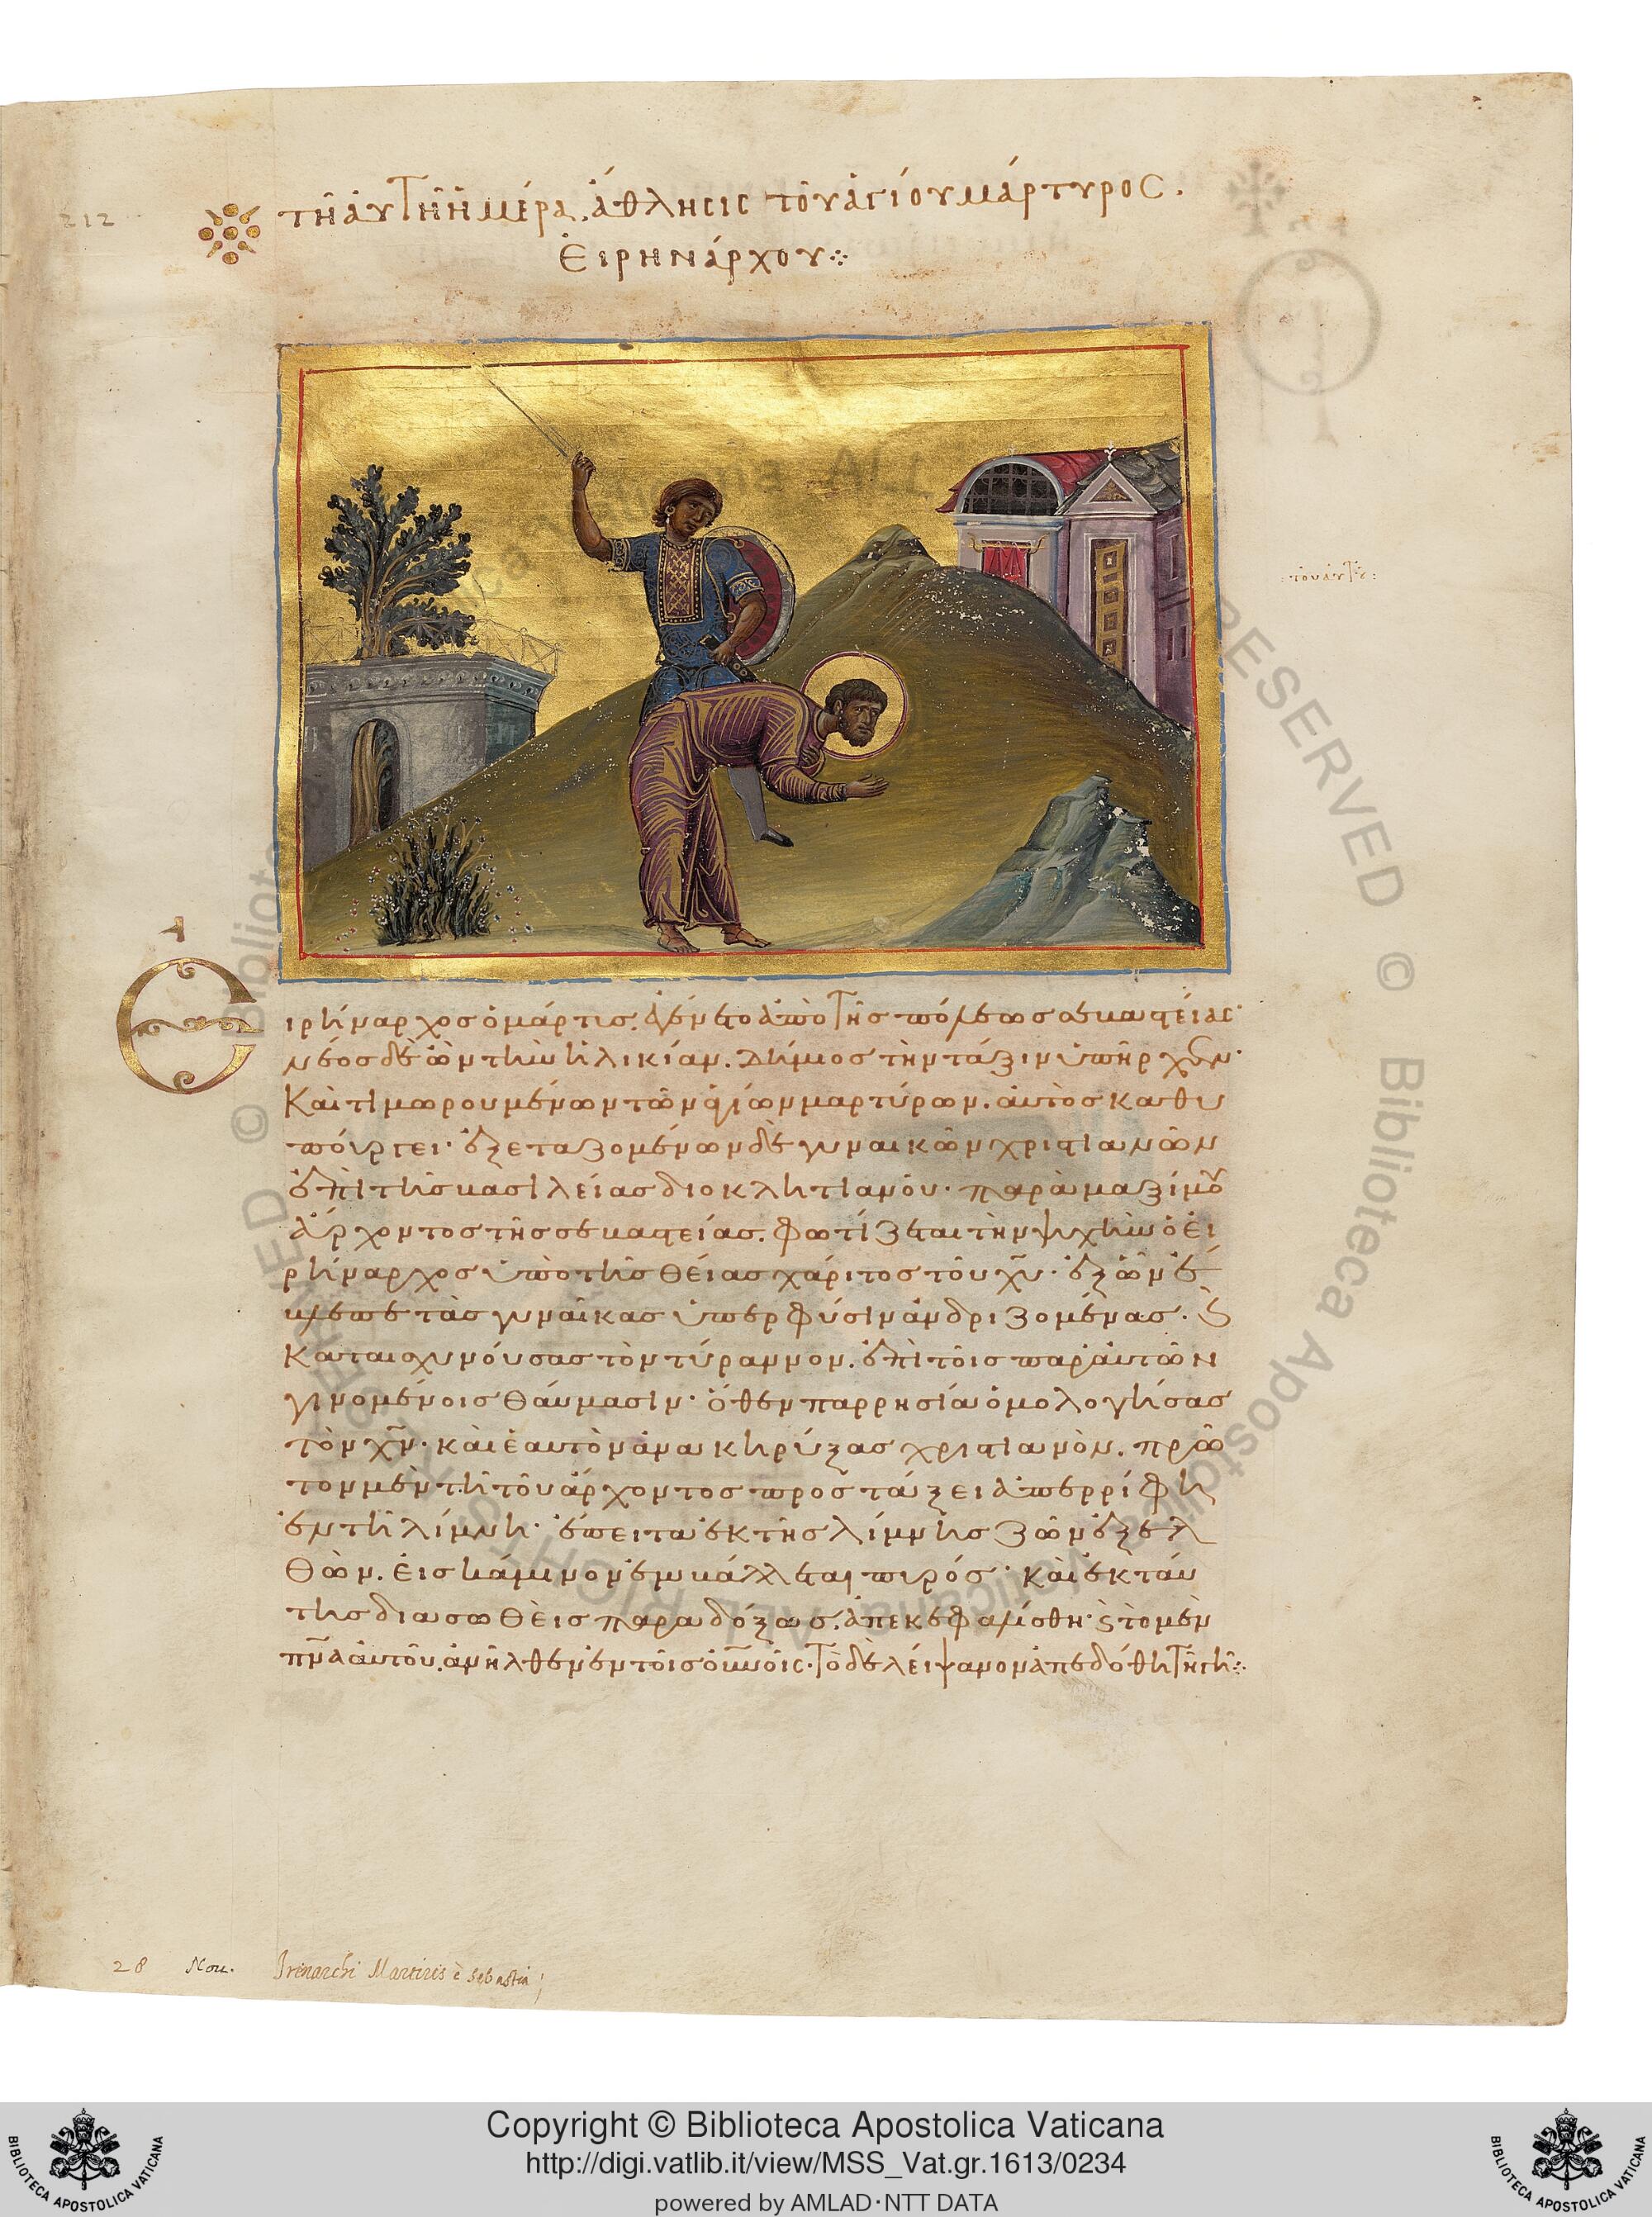 212
τῆ αὐτῆ ἡμέρα, ἄθλησις τοῦ ἁγίου μάρτυρος.
Εἰρηνάρχου
Εἰρήναρχος ὁ μάρτις, ἐγένετο ἀπὸ τῆς πόλεως σεβαστείας·
νέος δὲ ὢν τὴν ἡλικίαν. δήμιος τὴν τάξιν ὑπῆρχεν·
Καὶ τιμωρουμένων τῶν ἁγίων μαρτύρων. αὐτὸς καθυ
πούργει· ἐξεταζομένων δὲ γυναικῶν χριστιανῶν
ἐπὶ τῆς βασιλείας διοκλητιανοῦ· παρὰ μαξίμου
ἄρχοντος τῆς σεβαστείας. φωτίζεται τὴν ψυχὴν ὁ εἰ
ρήναρχος ὑπὸ τῆς θείας χάριτος τοῦ χυ· ἐξ ὧν ἔ
βλεπε τὰς γυναῖκας ὑπερφύσιν ἀνδριζομένας· ϛ
Καταισχυνούσας τὸν τύραννον. ἐπὶ τοῖς παρ αὐτῶν
γινομένοις θαύμασιν· ὅθεν παρρησία ὁμολογήσας
τὸν χν· καὶ ἑαυτὸν ἀνακηρύξας χριστιανὸν. πρῶ
τον μὲν τῆ τοῦ ἄρχοντος προστάξει ἀπερρίφη
ἐν τῆ λίμνη· ἔπειτα ἐκ τῆς λίμνης ζῶν ἐξελ
θὼν. εἰς κάμινον ἐμβάλλεται πυρός· καὶ ἐκ ταύ
της διασωθεὶς παραδόξως. ἀπεκεφαλίσθη· ϛ τὸ μὲν
πνα αὐτοῦ. ἀνῆλθεν ἐν τοῖς οὐνοῖς· τὸ δὲ λείψανον ἀπεδόθη τῆ γῆ
28 Nou. Irenarchi Martiris è Sebastia;
© Biblioteca Apostolica Vaticana ALL RIGHTS RESERVED
Copyright © Biblioteca Apostolica Vaticana
http://digi.vatlib.it/view/MSS_Vat.gr.1613/0234
powered by AMLAD·NTT DATA
BIBLIOTECA APOSTOLICA VATICANA
BIBLIOTECA APOSTOLICA VATICANA